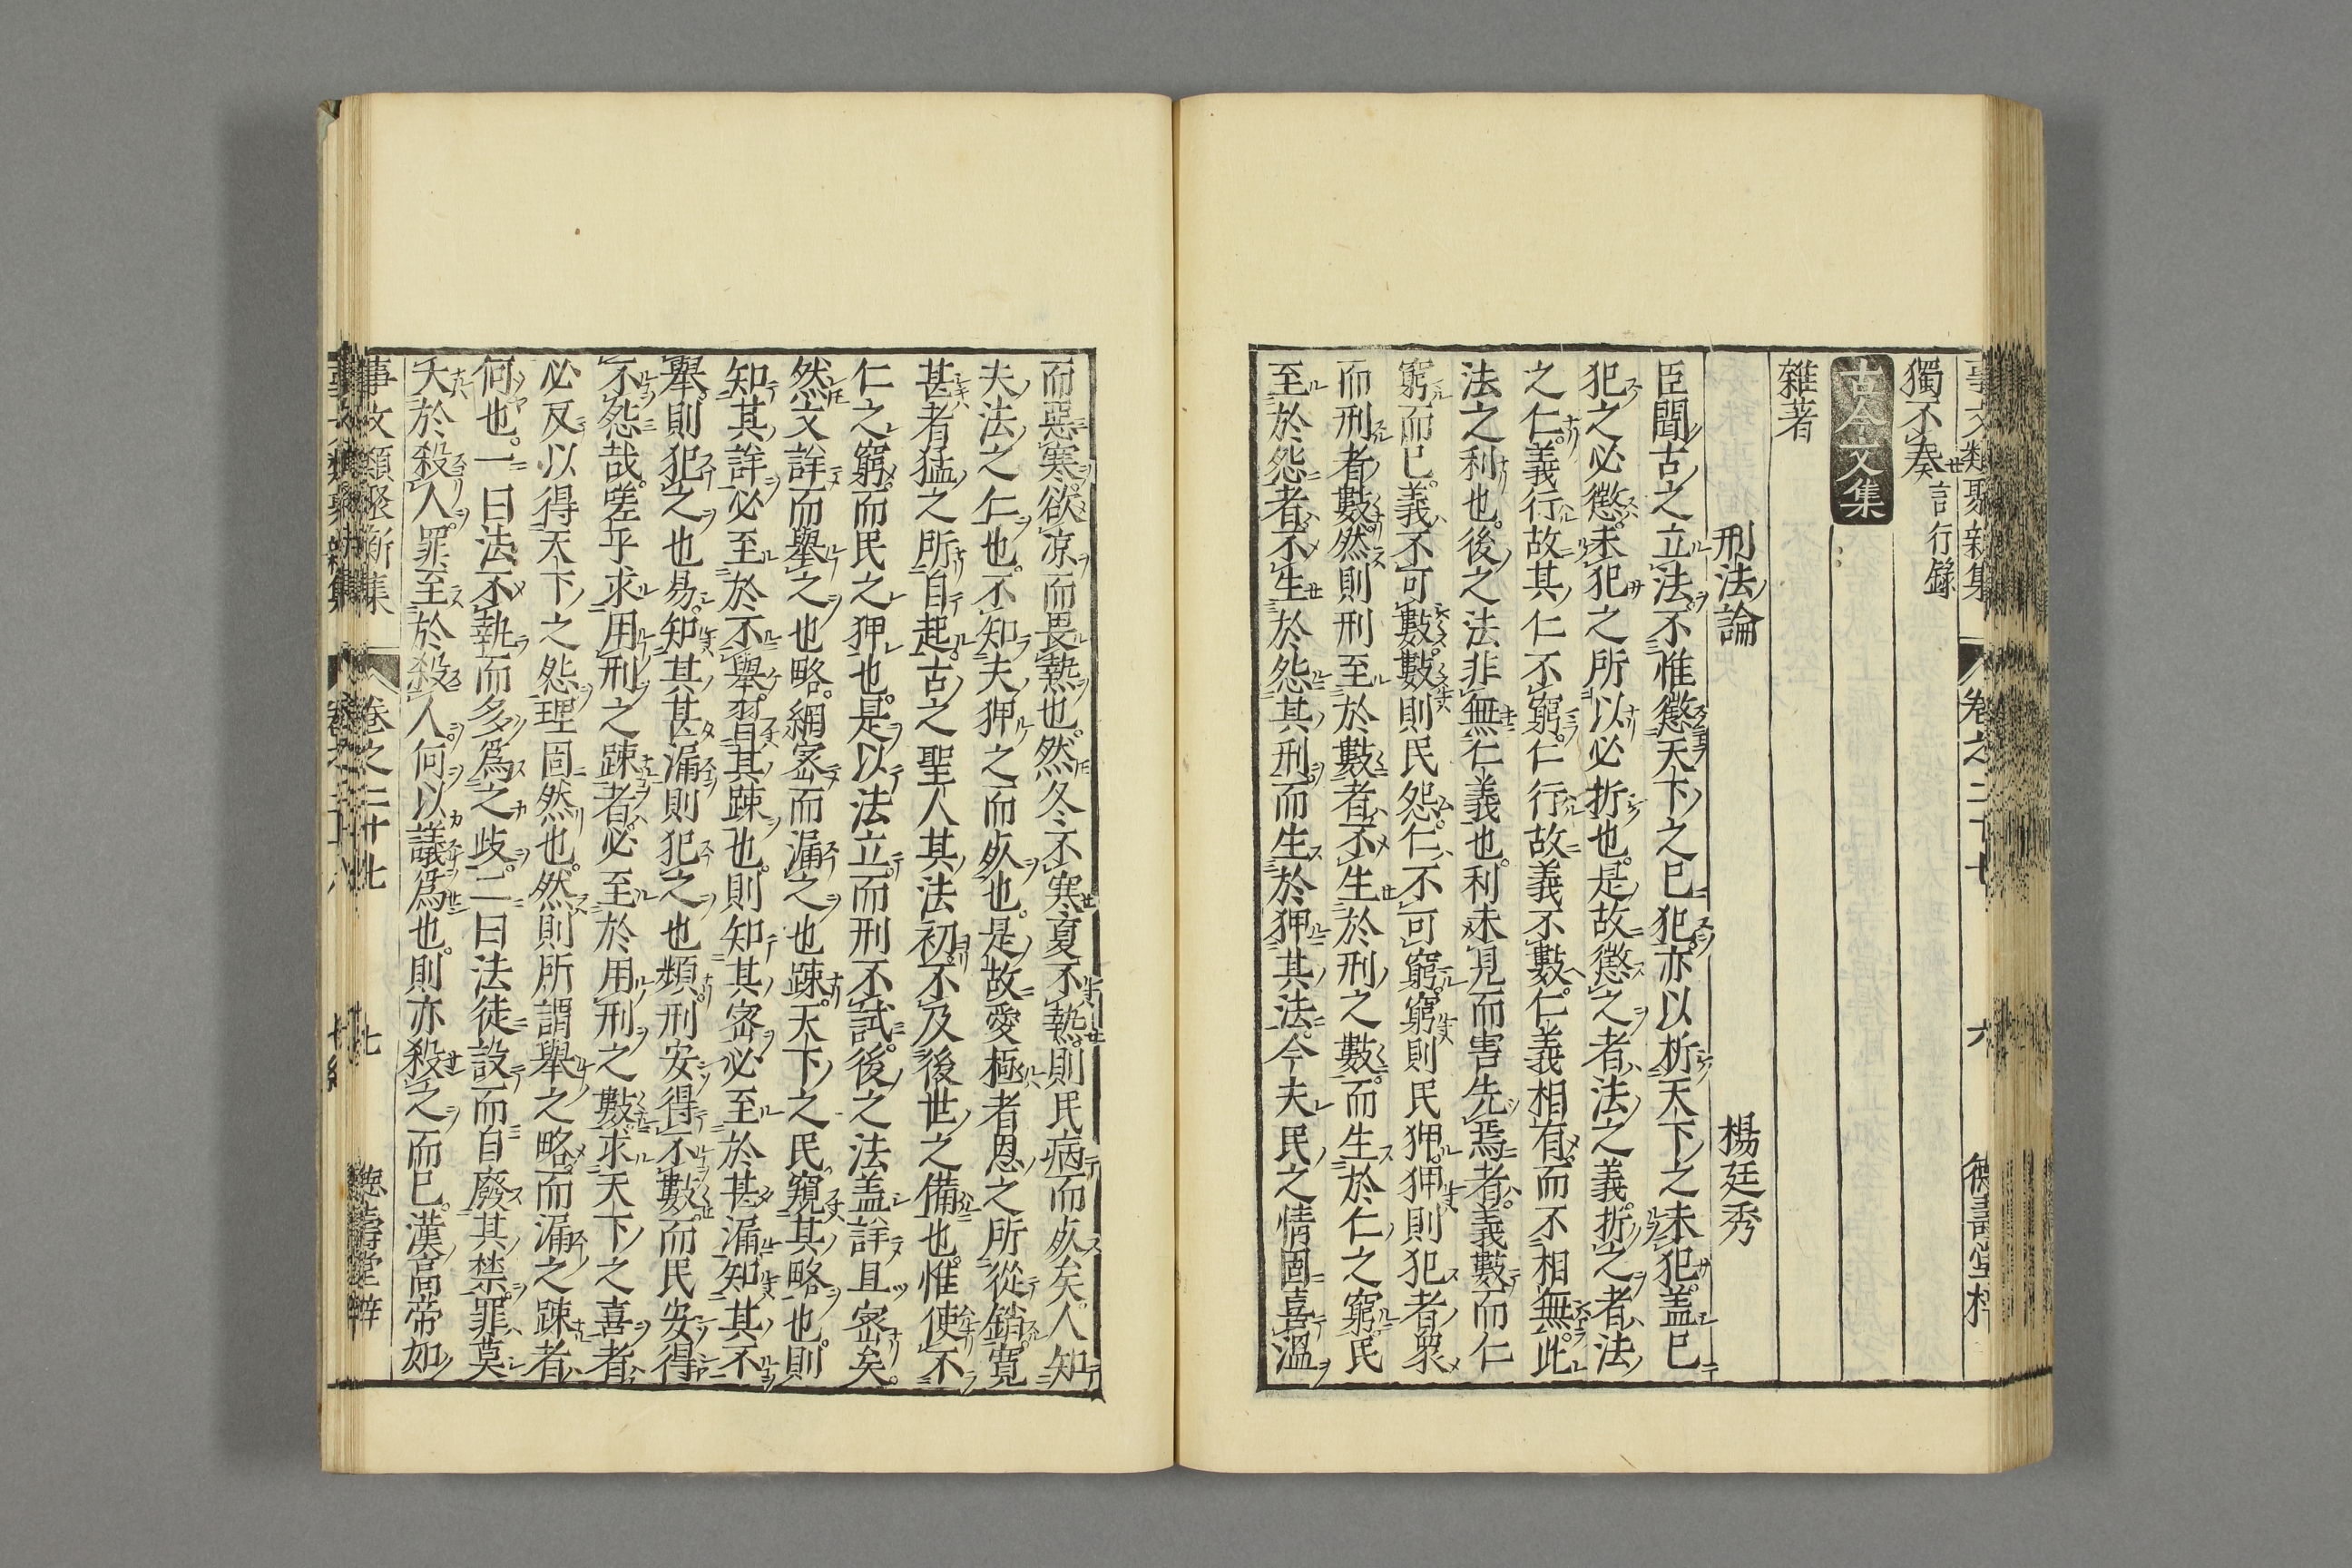 獨不奏 言行錄
古今文集
雜著
刑法論 楊廷秀
臣聞古之立法不惟懲天下之已犯亦以折天下之未犯盖已
犯之必懲未犯之所以必折也是故懲之者法之義折之者法
之仁義行故其仁不窮仁行故義不數仁義相有而不相無此
法之利也後之法非無仁義也利未見而害先焉者義數而仁
窮而已義不可數數則民怨仁不可窮窮則民狎狎則犯者衆
而刑者數然則刑至於數者不生於刑之數而生於仁之窮民
至於怨者不生於怨其刑而生於狎其法今夫民之情固喜溫
而惡寒欲凉而畏熱也然冬不寒夏不熱則民病而死矣人知
夫法之仁也不知夫狎之而死也是故愛極者恩之所從銷寬
甚者猛之所自起古之聖人其法初不及後世之備也惟使不
仁之窮而民之狎也是以法立而刑不試後之法盖詳且宻矣
然文詳而舉之也略網宻而漏之也踈天下之民窺其略也則
知其詳必至於不舉習其踈也則知其宻必至於甚漏知其不
舉則犯之也易知其甚漏則犯之也頻刑安得不數而民安得
不怨哉嗟乎求用刑之踈者必至於用刑之數求天下之喜者
必反以得天下之怨理固然也然則所謂舉之略而漏之踈者
何也一曰法不執而多爲之歧二曰法徒設而自廢其禁罪莫
大於殺人罪至於殺人何以議爲也則亦殺之而已漢高帝如
事文類聚新集 卷之二十七 七 德壽堂梓